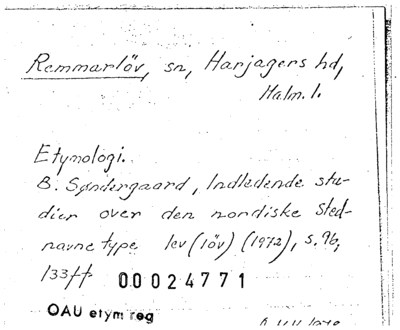 Remmarlöv, sn, Harjagers hd,
Malm. l.
Etymologi.
B. Søndergaard, Indledende stu-
dier over den nordiske sted-
navnetype lev (löv) (1972), s. 96,
133ff 00024771
OAU etym reg